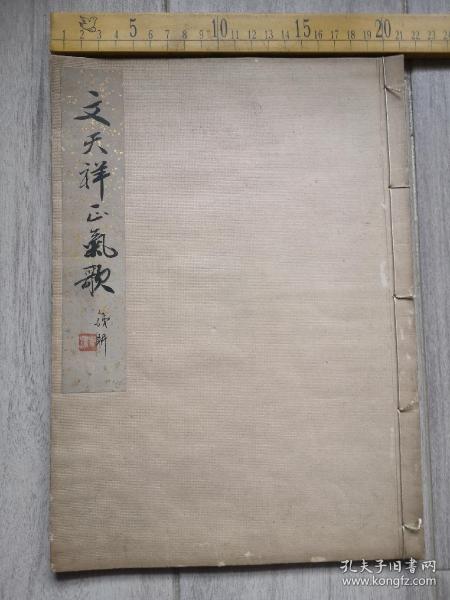 5 10 15 20
1 2 3 4 5 6 7 8 9 10 11 12 13 14 15 16 17 18 19 20 21 22 23 24
文天祥正氣歌
孔夫子旧书网
www.kongfz.com